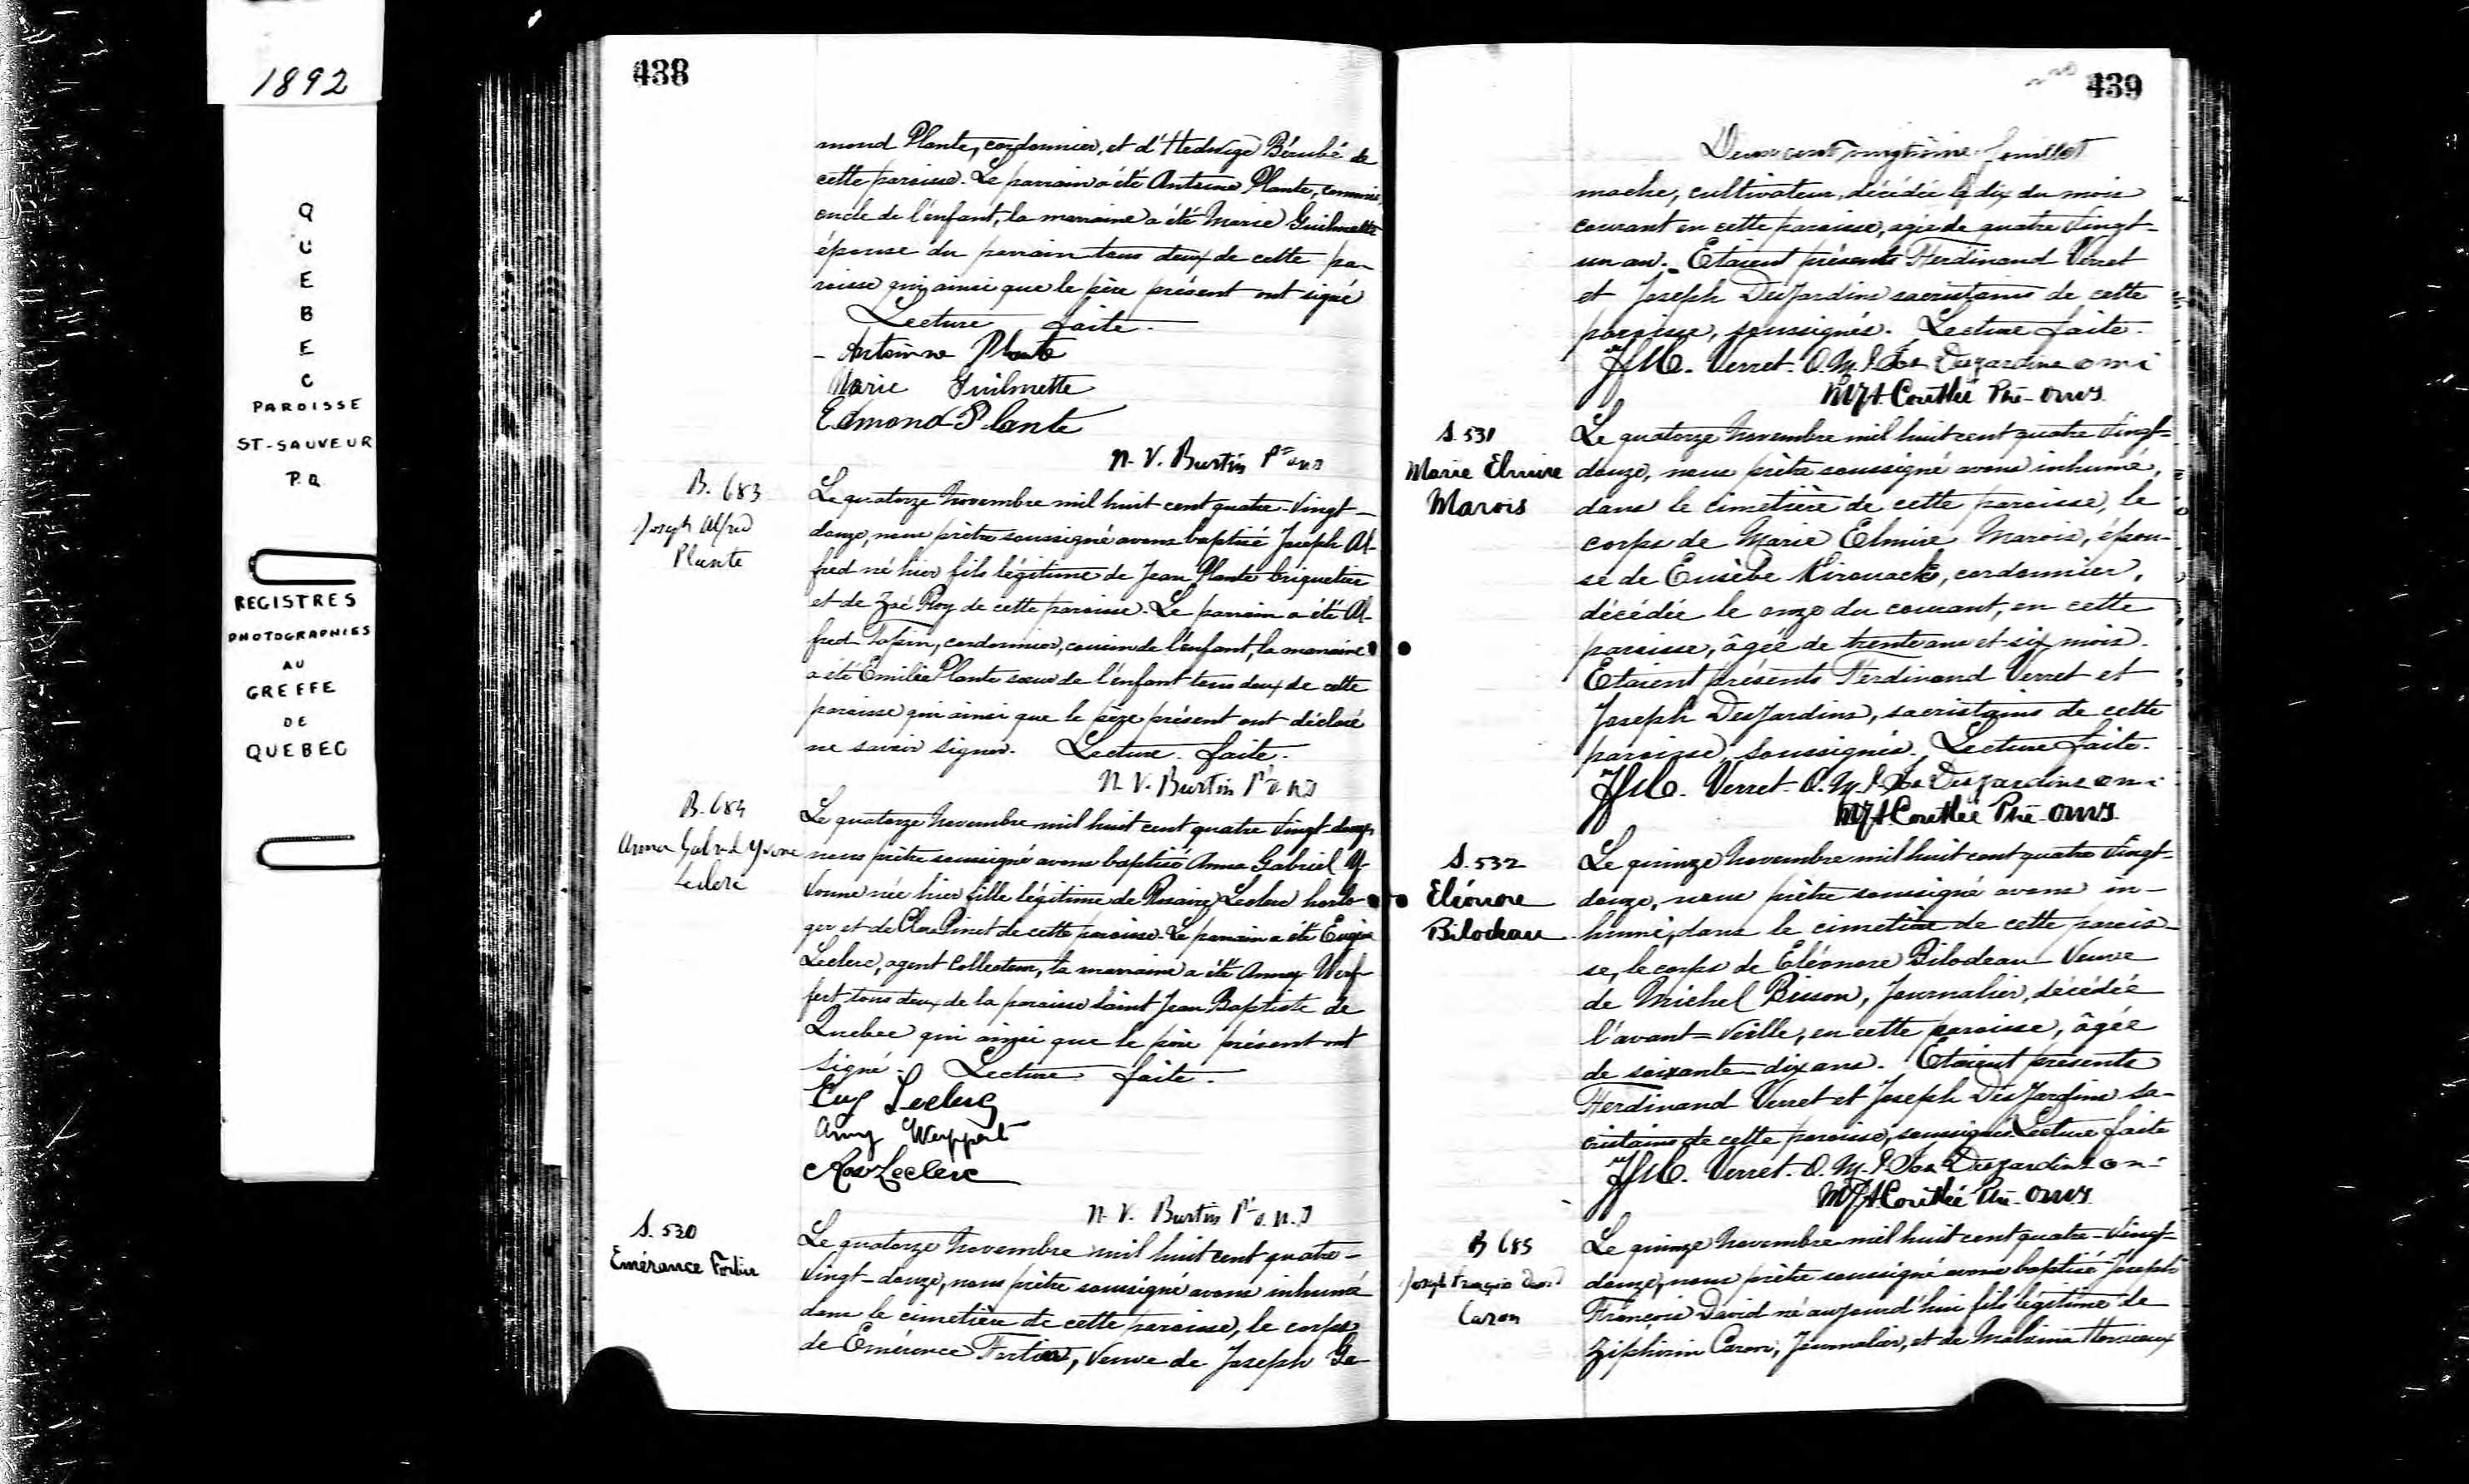 1892
QUEBEC
PAROISSE
ST-SAUVEUR
P.Q.
REGISTRES
PHOTOGRAPHIES
AU
GREFFE
DE
QUEBEC
438
mond Plante, cordonnier, et d'Hedwige Bérubé de
cette paroisse. Le parrain a été Antoine Plante, commis,
oncle de l'enfant, la marraine a été Marie Guilmette
épouse du parrain tous deux de cette pa-
roisse qui ainsi que le père présent ont signé
Lecture faite.
Antoine Plante
Marie Guilmette
Edmond Plante
N. V. Burtin
B. 683
Joseph Alfred
Plante
Le quatorze Novembre mil huit cent quatre-vingt-
douze, nous prêtre soussigné avons baptisé Joseph Al-
fred né hier fils légitime de Jean Plante briquetier
et de Zoé Roy de cette paroisse. Le parrain a été Al-
fred cordonnier, cousin de l'enfant, la marraine
a été Emilie Plante soeur de l'enfant tous deux de cette
paroisse qui ainsi que le père présent ont déclaré
ne savoir signer. Lecture faite.
N. V. Burtin
B. 684
Anna Gabriel Yvonne
Leclerc
Le quatorze Novembre mil huit cent quatre vingt-douze
nous prêtre soussigné avons baptisé Anna Gabriel Y-
vonne née hier fille légitime de Rosaire Leclerc horlo-
ger et de Pinet de cette paroisse. Le parrain a été Eugène
Leclerc, agent Collecteur, la marraine a été
tous deux de la paroisse Saint Jean Baptiste de
Quebec qui ainsi que le père présent ont
signé. Lecture faite.
Eug Leclerc
Ros Leclerc
N. V. Burtin
S. 530
Emérance Fortier
Le quatorze Novembre mil huit cent quatre-
vingt-douze, nous prêtre soussigné avons inhumé
dans le cimetière de cette paroisse, le corps
de Emérence Fortier, Veuve de Joseph Ga-
439
Deux cent vingtième feuillet
mache, cultivateur, décédée le dix du mois
courant en cette paroisse, agée de quatre vingt-
un an. Etaient présents Ferdinand Verret
et Joseph DesJardins sacristains de cette
paroisse, soussignés. Lecture faite.
Verret O.M.I. Jos Desjardins omi
S. 531
Marie Elmire
Marois
Le quatorze Novembre mil huit cent quatre vingt-
douze, nous prêtre soussigné avons inhumé,
dans le cimetière de cette paroisse, le
corps de Marie Elmire Marois, épou-
se de Eusèbe Kirouack, cordonnier,
décédée le onze du courant, en cette
paroisse, âgée de trente ans et six mois.
Etaient présents Ferdinand Verret et
Joseph DesJardins, sacristains de cette
paroisse soussignés. Lecture faite.
Verret O.M.I. Jos Desjardins omi
S. 532
Eléonore
Bilodeau
Le quinze Novembre mil huit cent quatre vingt-
douze, nous prêtre soussigné avons in-
humé, dans le cimetière de cette parois-
se, le corps de Eléonore Bilodeau Veuve
de Michel Bisson, Journalier, décédée
l'avant-veille, en cette paroisse, âgée
de soixante-dix ans. Etaient présents
Ferdinand Verret et Joseph DesJardins sa-
cristains de cette paroisse, soussignés Lecture faite
Verret O.M.I. Jos Desjardins omi
B 685
Joseph François David
Caron
Le quinze Novembre mil huit cent quatre-vingt-
douze, nous prêtre soussigné avons baptisé Joseph
François David né aujourd'hui fils légitime de
Ziphirin Caron, Journalier, et de Malvina